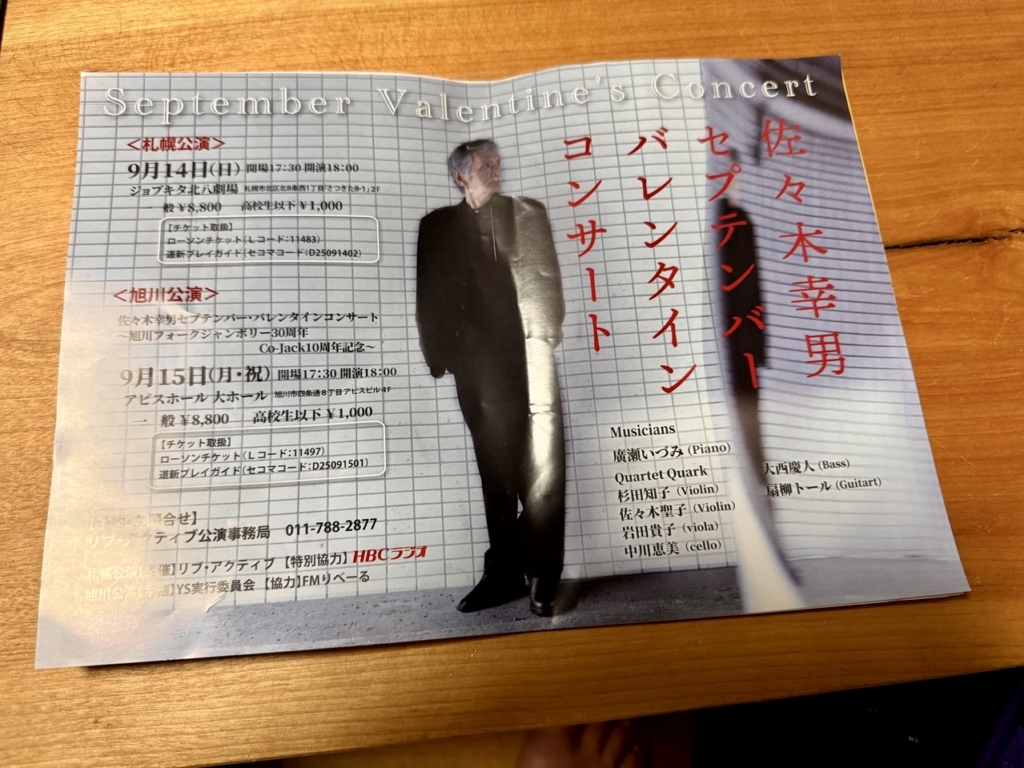 September Valentine's Concert
佐々木幸男
セプテンバー
バレンタイン
コンサート
＜札幌公演＞
9月14日(日) 開場17:30 開演18:00
ジョブキタ北八劇場 札幌市北区北8条西1丁目「さつきた8・1」2F
一 般 ¥8,800 高校生以下 ¥1,000
【チケット取扱】
ローソンチケット(Lコード:11483)
道新プレイガイド(セコマコード:D25091402)
＜旭川公演＞
佐々木幸男セプテンバー・バレンタインコンサート
～旭川フォークジャンボリー30周年
Co-Jack10周年記念～
9月15日(月・祝) 開場17:30 開演18:00
アピスホール 大ホール 旭川市四条通8丁目アピスビル4F
一 般 ¥8,800 高校生以下 ¥1,000
【チケット取扱】
ローソンチケット(Lコード:11497)
道新プレイガイド(セコマコード:D25091501)
合せ】
リブ・アクティブ公演事務局 011-788-2877
札幌公演【主催】リブ・アクティブ 【特別協力】HBCラジオ
旭川公演【主催】YS実行委員会 【協力】FMりべーる
Musicians
廣瀬いづみ (Piano)
Quartet Quark
杉田知子 (Violin)
佐々木聖子 (Violin)
岩田貴子 (viola)
中川恵美 (cello)
大西慶人 (Bass)
扇柳トール (Guitart)